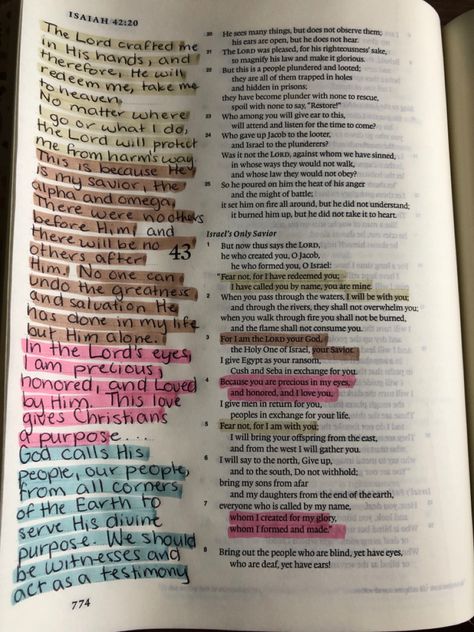 ISAIAH 42:20
The Lord crafted me
in His hands, and
therefore, He will
redeem me, take me
to heaven.
No matter where
I go or what I do,
the Lord will protect
me from harm's way.
This is because He
is my savior, the
alpha and omega.
There were no others
before Him, and
there will be no
others after
Him. No one can
undo the greatness
and salvation He
has done in my life
but Him alone.
In the Lord's eyes,
I am precious,
honored, and Loved
by Him. This love
gives Christians
a purpose....
God calls His
people, our people,
from all corners
of the Earth to
serve His divine
purpose. We should
be witnesses and
act as a testimony
774
20 He sees many things, but does not observe them;
his ears are open, but he does not hear.
21 The LORD was pleased, for his righteousness' sake,
to magnify his law and make it glorious.
22 But this is a people plundered and looted;
they are all of them trapped in holes
and hidden in prisons;
they have become plunder with none to rescue,
spoil with none to say, "Restore!"
23 Who among you will give ear to this,
will attend and listen for the time to come?
24 Who gave up Jacob to the looter,
and Israel to the plunderers?
Was it not the LORD, against whom we have sinned,
in whose ways they would not walk,
and whose law they would not obey?
25 So he poured on him the heat of his anger
and the might of battle;
it set him on fire all around, but he did not understand;
it burned him up, but he did not take it to heart.
Israel's Only Savior
43
1 But now thus says the LORD,
he who created you, O Jacob,
he who formed you, O Israel:
"Fear not, for I have redeemed you;
I have called you by name, you are mine.
2 When you pass through the waters, I will be with you;
and through the rivers, they shall not overwhelm you;
when you walk through fire you shall not be burned,
and the flame shall not consume you.
3 For I am the LORD your God,
the Holy One of Israel, your Savior.
I give Egypt as your ransom,
Cush and Seba in exchange for you.
4 Because you are precious in my eyes,
and honored, and I love you,
I give men in return for you,
peoples in exchange for your life.
5 Fear not, for I am with you;
I will bring your offspring from the east,
and from the west I will gather you.
6 I will say to the north, Give up,
and to the south, Do not withhold;
bring my sons from afar
and my daughters from the end of the earth,
7 everyone who is called by my name,
whom I created for my glory,
whom I formed and made."
8 Bring out the people who are blind, yet have eyes,
who are deaf, yet have ears!